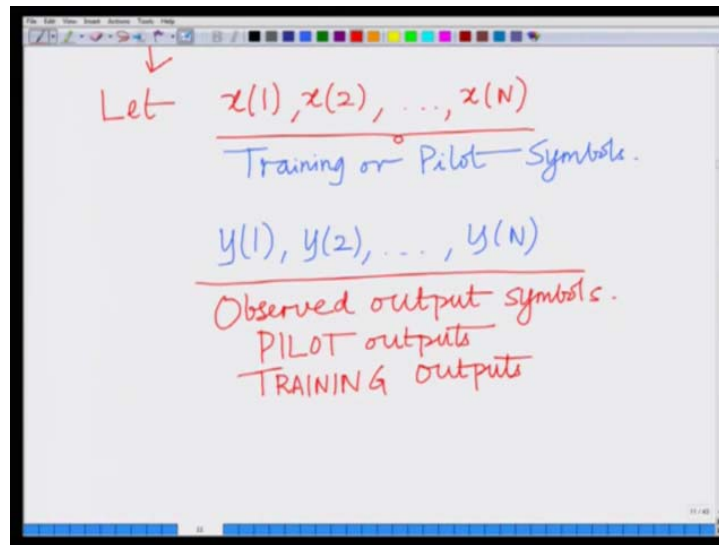 File Edit View Insert Actions Tools Help
Let x(1), x(2), ..., x(N)
Training or Pilot Symbols.
y(1), y(2), ..., y(N)
Observed output symbols.
PILOT outputs
TRAINING outputs